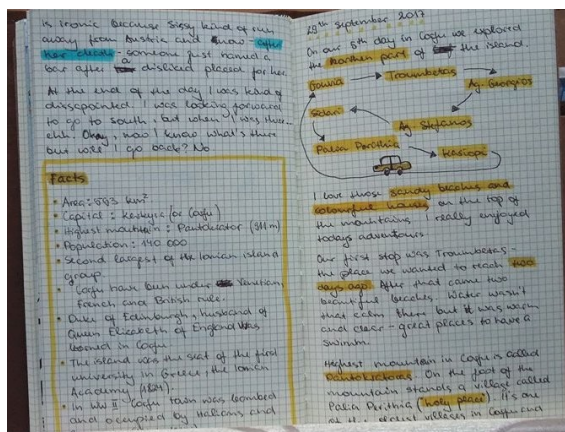 is ironic because Sissy kind of run
away from Austria and know - after
her death - someone just named a
bar after a disliked placed for her
At the end of the day I was kind of
dissapointed. I was looking forward
to go to south, but when I was there...
ehh. Okay, now I know what's there
but will I go back? No
Facts
• Area: 593 km²
• Capital: Kerkyra (or Corfu)
• Highest mountain: Pantokrator (911 m)
• Population: 140 000
• second largest of the Ionian island
group.
• Corfu have bun under Venetian,
French and British rule.
• Duke of Edinburgh, husband of
Queen Elizabeth of England was
borned in Corfu.
• The island was the seat of the first
university in Greece, the Ionian
Academy (1824).
• In WW II Corfu town was bombed
and occupied by Italians and
28th September, 2017
On our 5th day in Corfu we explored
the northen part of the island.
Gouvia → Troumbetas
Ag. Georgios
Sidari
Ag. Stefanos
Palia Perithia → Kassiopi
I love those sandy beaches and
colourful houses on the top of
the mountains. I really enjoyed
todays adventours.
Our first stop was Troumbetas -
the place we wanted to reach two
days ago. After that came two
beautiful beaches. Water wasn't
that calm there but it was warm
and clear - great places to have a
swimm.
Highest mountain in Corfu is called
Pantokratoras. On the foot of the
mountain stands a village called
Palia Perithia ("holy place"). It's one
of the oldest villages in Corfu and